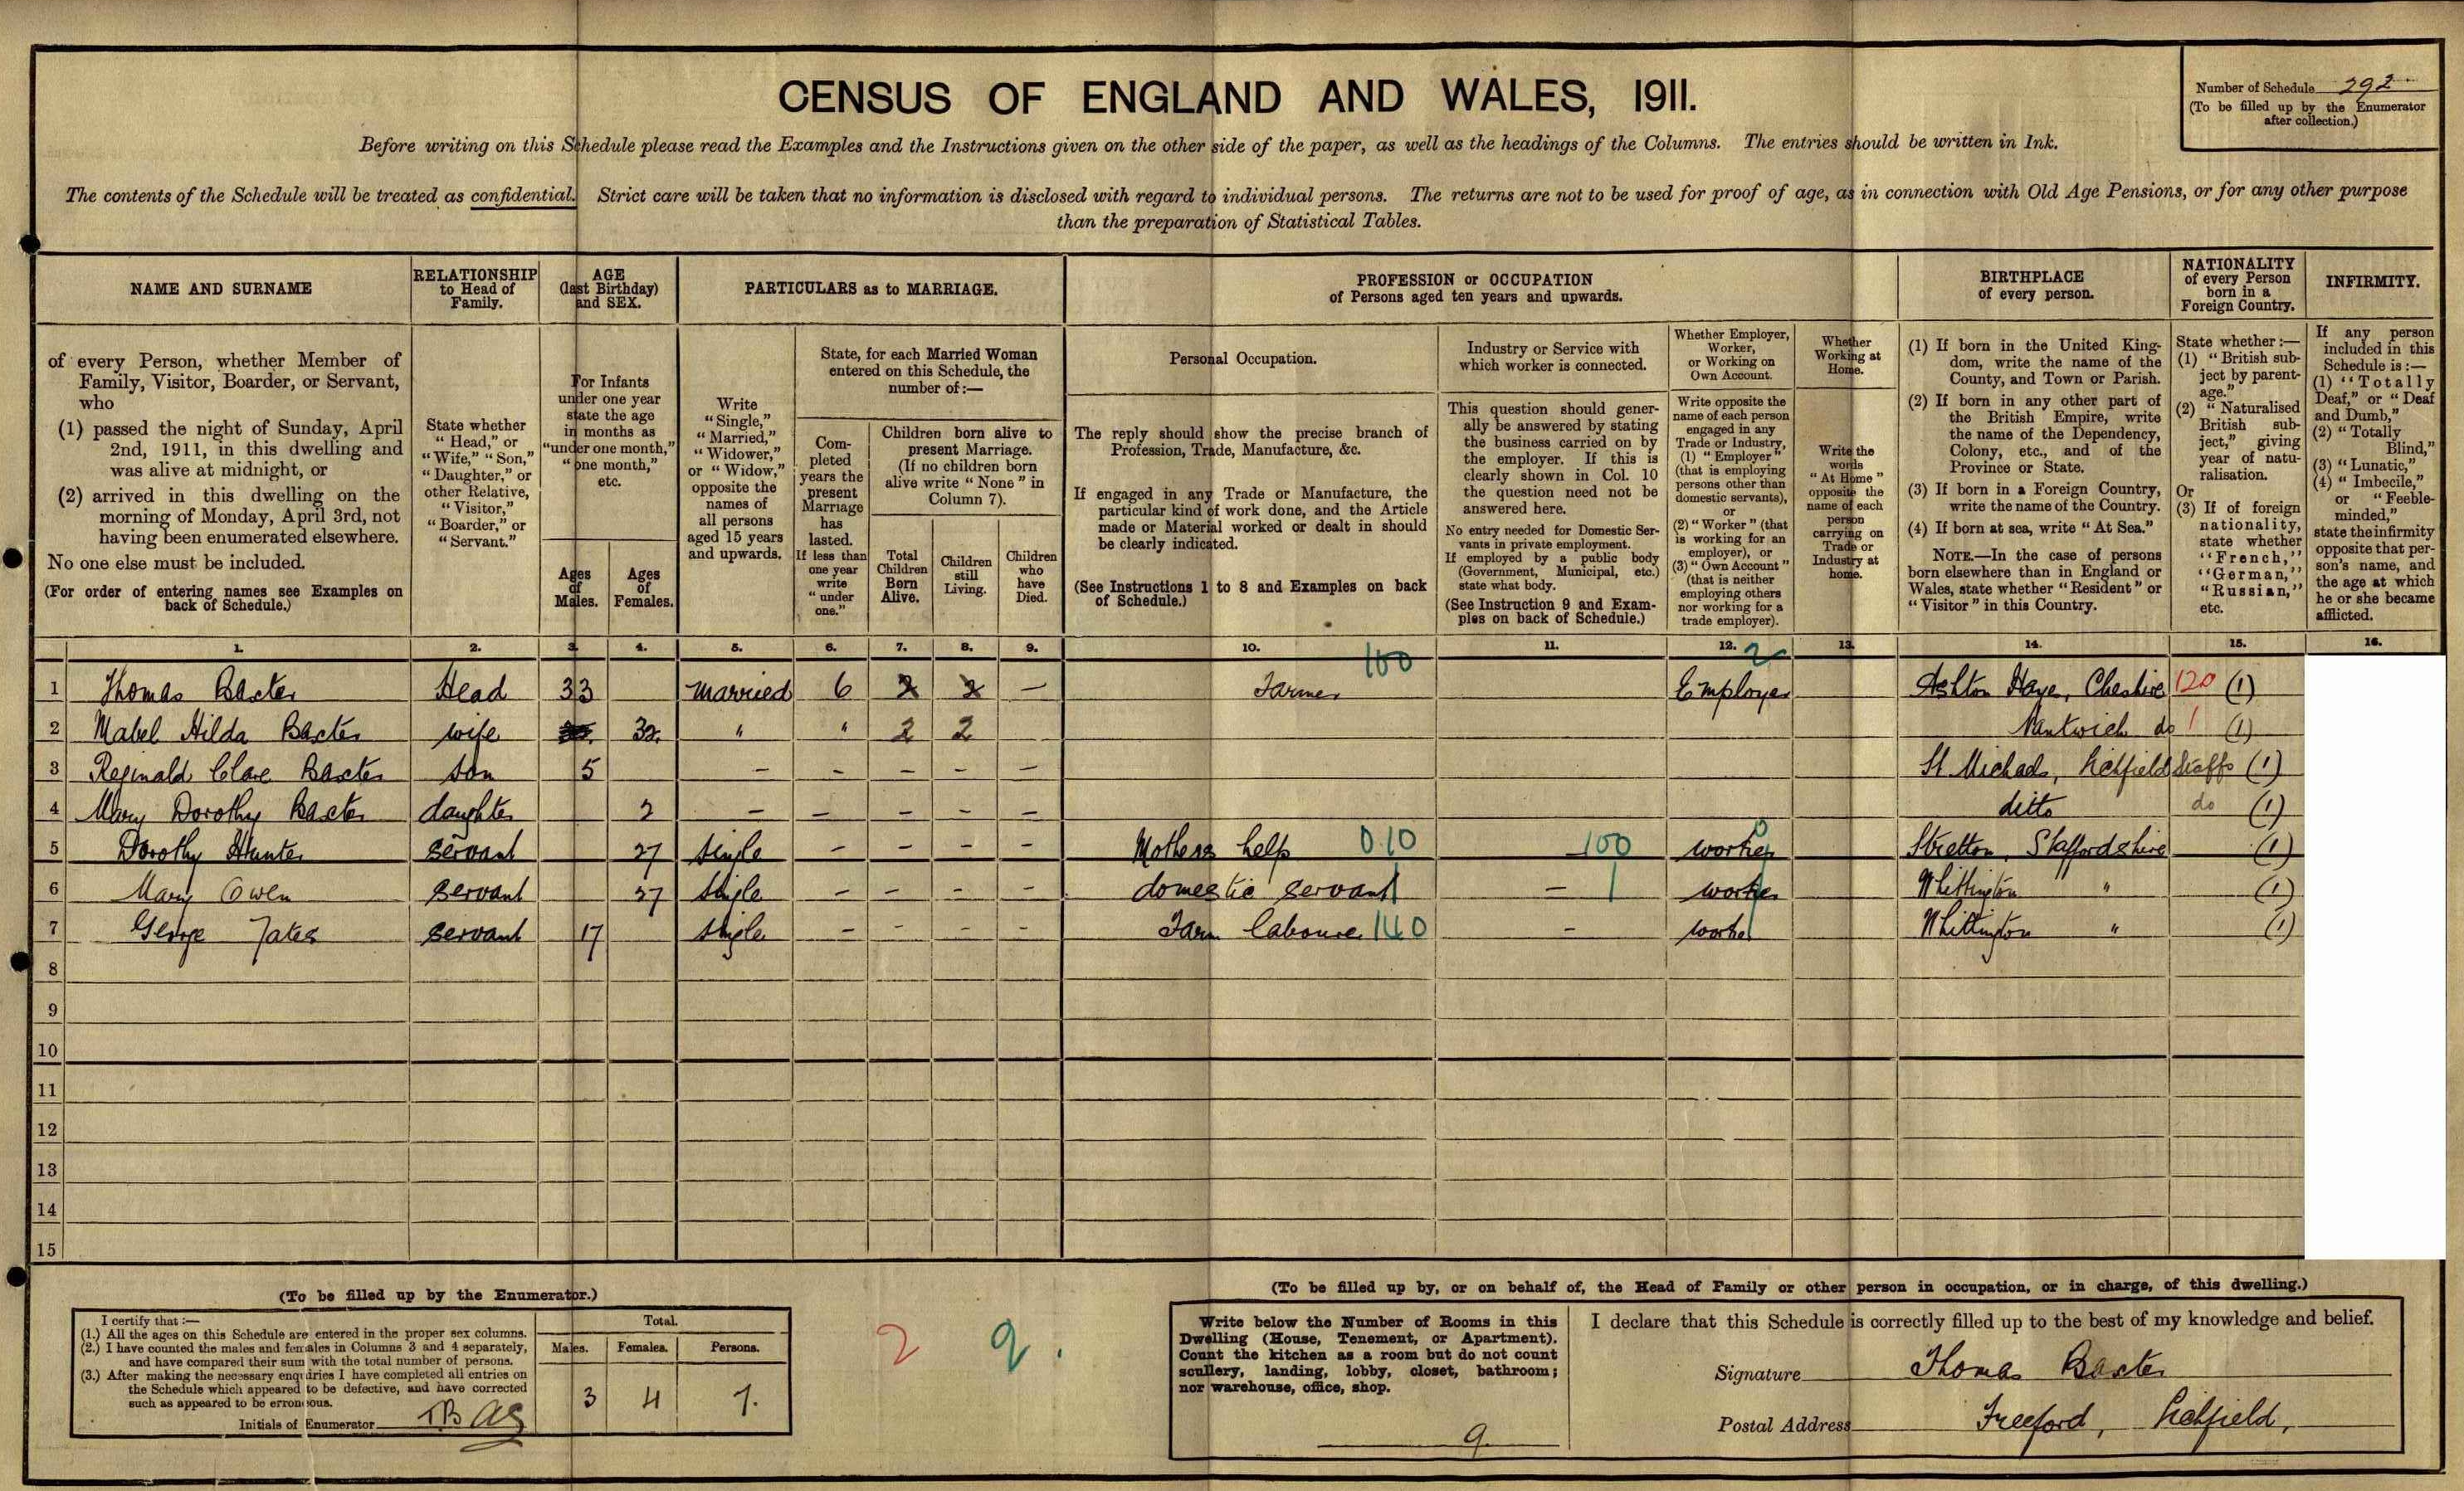 CENSUS OF ENGLAND AND WALES, 1911.
Number of Schedule 292
(To be filled up by the Enumerator
after collection.)
Before writing on this Schedule please read the Examples and the Instructions given on the other side of the paper, as well as the headings of the Columns. The entries should be written in Ink.
The contents of the Schedule will be treated as confidential. Strict care will be taken that no information is disclosed with regard to individual persons. The returns are not to be used for proof of age, as in connection with Old Age Pensions, or for any other purpose
than the preparation of Statistical Tables.
NAME AND SURNAME
of every Person, whether Member of
Family, Visitor, Boarder, or Servant,
who
(1) passed the night of Sunday, April
2nd, 1911, in this dwelling and
was alive at midnight, or
(2) arrived in this dwelling on the
morning of Monday, April 3rd, not
having been enumerated elsewhere.
No one else must be included.
(For order of entering names see Examples on
back of Schedule.)
RELATIONSHIP
to Head of
Family.
State whether
"Head," or
"Wife," "Son,"
"Daughter," or
other Relative,
"Visitor,"
"Boarder," or
"Servant."
AGE
(last Birthday)
and SEX.
For Infants
under one year
state the age
in months as
"under one month,"
"one month,"
etc.
Ages
of
Males.
Ages
of
Females.
PARTICULARS as to MARRIAGE.
Write
"Single,"
"Married,"
"Widower,"
or "Widow,"
opposite the
names of
all persons
aged 15 years
and upwards.
State, for each Married Woman
entered on this Schedule, the
number of:—
Com-
pleted
years the
present
Marriage
has
lasted.
If less than
one year
write
"under
one."
Children born alive to
present Marriage.
(If no children born
alive write "None" in
Column 7).
Total
Children
Born
Alive.
Children
still
Living.
Children
who
have
Died.
PROFESSION or OCCUPATION
of Persons aged ten years and upwards.
Personal Occupation.
The reply should show the precise branch of
Profession, Trade, Manufacture, &c.
If engaged in any Trade or Manufacture, the
particular kind of work done, and the Article
made or Material worked or dealt in should
be clearly indicated.
(See Instructions 1 to 8 and Examples on back
of Schedule.)
Industry or Service with
which worker is connected.
This question should gener-
ally be answered by stating
the business carried on by
the employer. If this is
clearly shown in Col. 10
the question need not be
answered here.
No entry needed for Domestic Ser-
vants in private employment.
If employed by a public body
(Government, Municipal, etc.)
state what body.
(See Instruction 9 and Exam-
ples on back of Schedule.)
Whether Employer,
Worker,
or Working on
Own Account.
Write opposite the
name of each person
engaged in any
Trade or Industry,
(1) "Employer"
(that is employing
persons other than
domestic servants),
or
(2) "Worker" (that
is working for an
employer), or
(3) "Own Account"
(that is neither
employing others
nor working for a
trade employer).
Whether
Working at
Home.
Write the
words
"At Home"
opposite the
name of each
person
carrying on
Trade or
Industry at
home.
BIRTHPLACE
of every person.
(1) If born in the United King-
dom, write the name of the
County, and Town or Parish.
(2) If born in any other part of
the British Empire, write
the name of the Dependency,
Colony, etc., and of the
Province or State.
(3) If born in a Foreign Country,
write the name of the Country.
(4) If born at sea, write "At Sea."
NOTE.—In the case of persons
born elsewhere than in England or
Wales, state whether "Resident" or
"Visitor" in this Country.
NATIONALITY
of every Person
born in a
Foreign Country.
State whether:—
(1) "British sub-
ject by parent-
age."
(2) "Naturalised
British sub-
ject," giving
year of natu-
ralisation.
Or
(3) If of foreign
nationality,
state whether
"French,"
"German,"
"Russian,"
etc.
INFIRMITY.
If any person
included in this
Schedule is:—
(1) "Totally
Deaf," or "Deaf
and Dumb,"
(2) "Totally
Blind,"
(3) "Lunatic,"
(4) "Imbecile,"
or "Feeble-
minded,"
state the infirmity
opposite that per-
son's name, and
the age at which
he or she became
afflicted.
1. 2. 3. 4. 5. 6. 7. 8. 9. 10. 11. 12. 13. 14. 15. 16.
100 2
1 Thomas Baxter Head 33 married 6 2 2 — Farmer Employer Ashton Haye, Cheshire 120 (1)
2 Mabel Hilda Baxter wife 32 " " 2 2 Nantwich do 1 (1)
3 Reginald Clare Baxter son 5 — — — — — St Michaels, Lichfield Staffs (1)
4 Mary Dorothy Baxter daughter 2 — — — — — ditto do (1)
5 Dorothy Hunter servant 27 single — — — — Mothers help 010 100 worker 0 Stretton, Staffordshire (1)
6 Mary Owen servant 27 single — — — — domestic servant — worker Whittington " (1)
7 George Yates servant 17 single — — — — Farm labourer 140 — worker Whittington " (1)
8
9
10
11
12
13
14
15
(To be filled up by the Enumerator.)
I certify that:—
(1.) All the ages on this Schedule are entered in the proper sex columns.
(2.) I have counted the males and females in Columns 3 and 4 separately,
and have compared their sum with the total number of persons.
(3.) After making the necessary enquiries I have completed all entries on
the Schedule which appeared to be defective, and have corrected
such as appeared to be erroneous.
Initials of Enumerator
Total.
Males. Females. Persons.
3 4 7.
2 9.
(To be filled up by, or on behalf of, the Head of Family or other person in occupation, or in charge, of this dwelling.)
Write below the Number of Rooms in this
Dwelling (House, Tenement, or Apartment).
Count the kitchen as a room but do not count
scullery, landing, lobby, closet, bathroom;
nor warehouse, office, shop.
9
I declare that this Schedule is correctly filled up to the best of my knowledge and belief.
Signature Thomas Baxter
Postal Address Freeford, Lichfield,